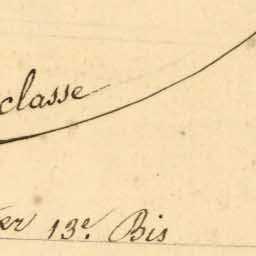 classe
er 13.e Bis